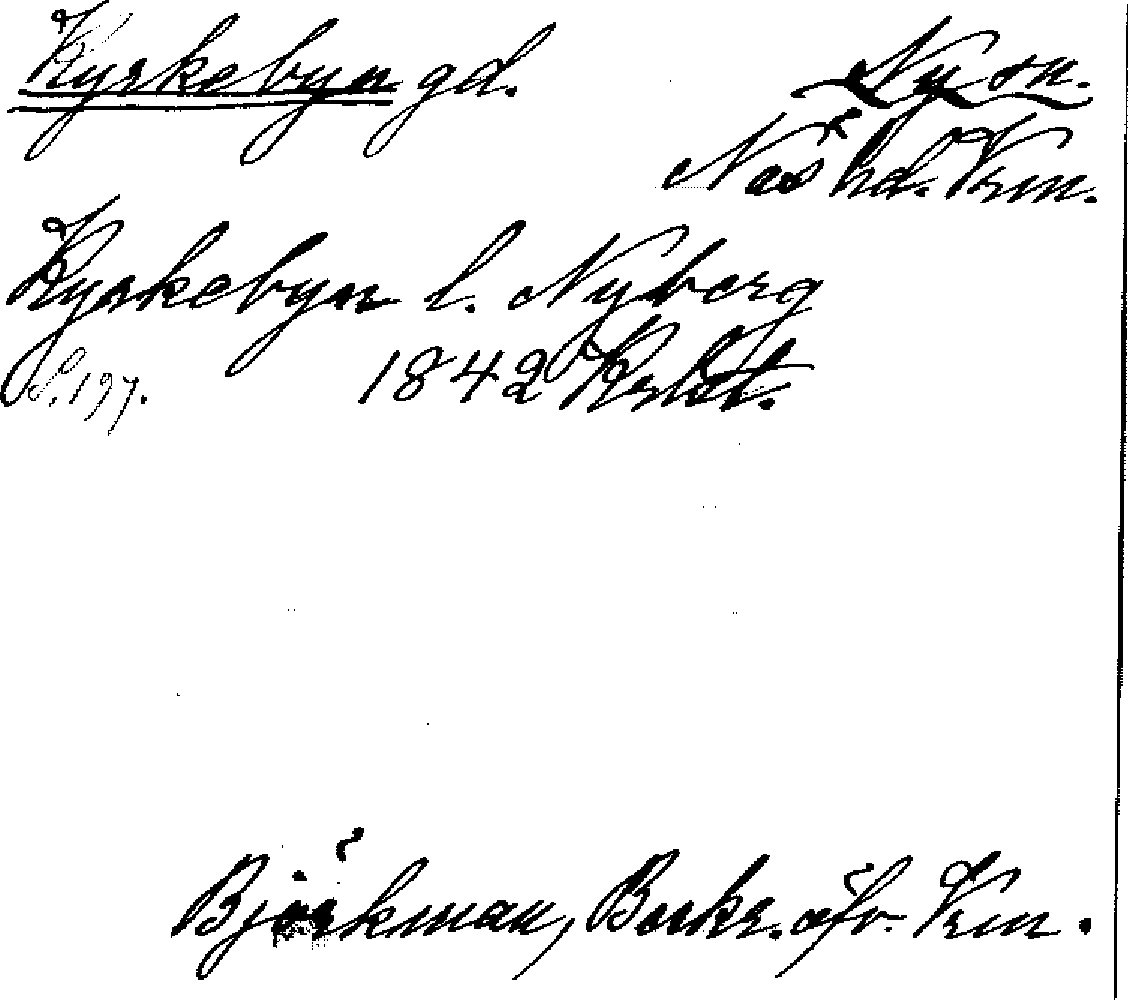 Kyrkebyn gd. Ny sn.
Näs hd. Vrm.
Kyrkebyn l. Nyberg
S. 197. 1842 Krbst.
Björkman, Beskr. öfv. Vrm.